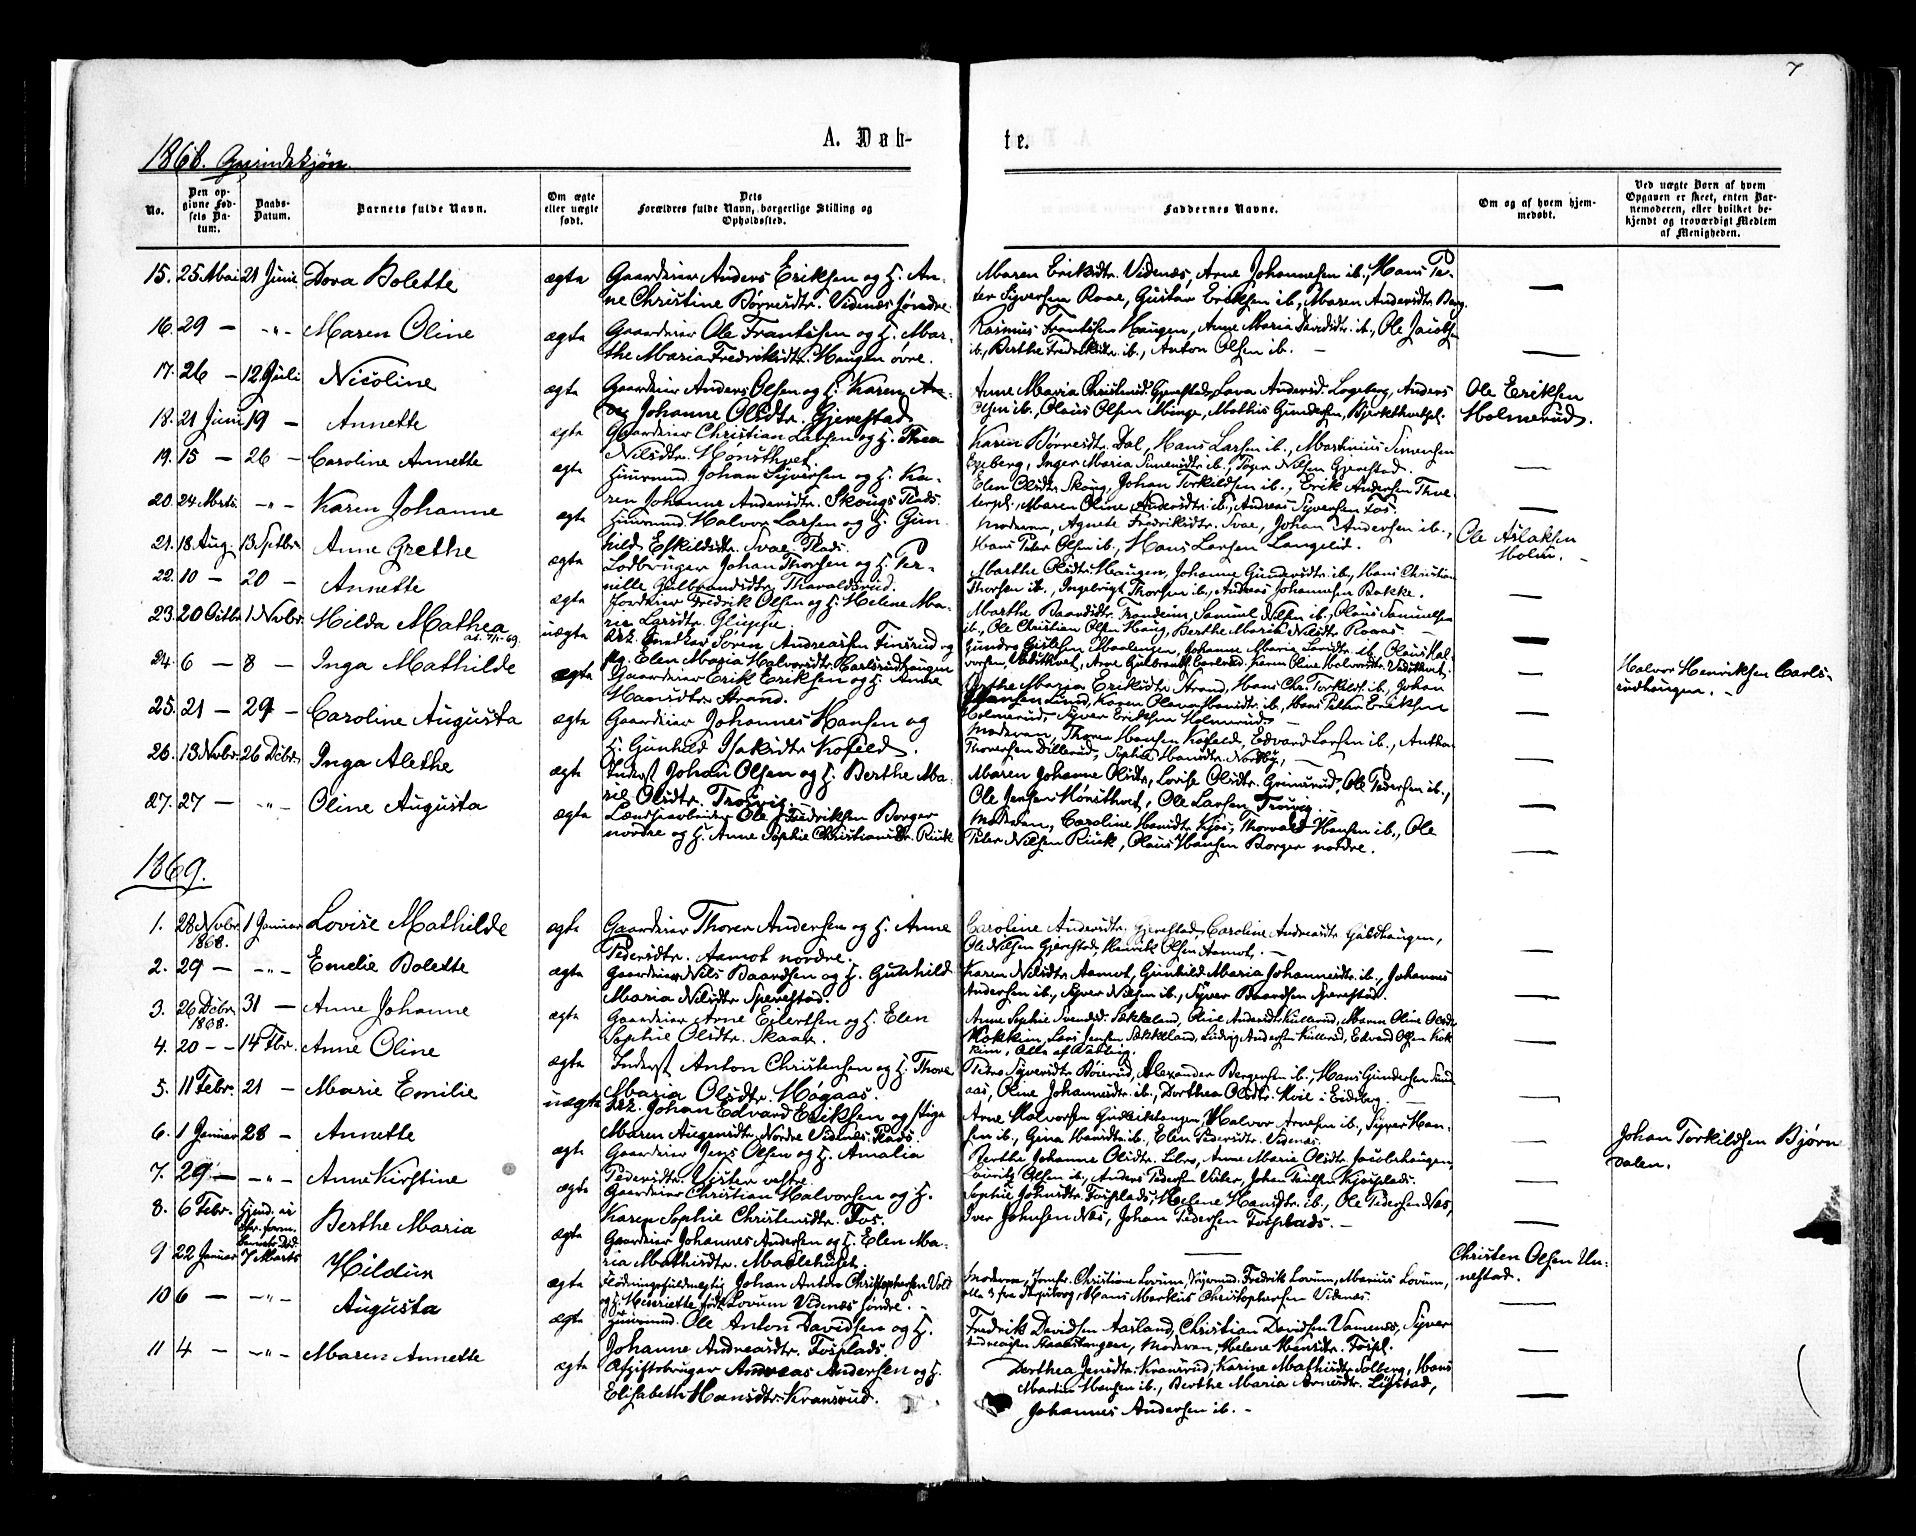 7
A. Døb-
te.
1868. Qvindekjøn.
No.
Den op-
givne Fød-
sels Da-
tum.
Daabs-
Datum.
Barnets fulde Navn.
Om ægte
eller uægte
født.
Dets
Forældres fulde Navn, borgerlige Stilling og
Opholdssted.
Faddernes Navne.
Om og af hvem hjem-
medøbt.
Ved uægte Børn af hvem
Opgaven er skeet, enten Bar-
nemoderen, eller hvilket be-
kjendt og troværdigt Medlem
af Menigheden.
15. 25 Mai 21 Juni Dora Bolette ægte Gaardeier Anders Eriksen og H. An-
ne Christine Børresdtr. Videnæs søndre
Maren Eriksdtr. Videnæs, Arne Johannesen ib., Hans Pe-
ter Syversen Roae, Gustav Eriksen ib., Maren Andersdtr. Berg.
—
16. 29 — -"- Maren Oline ægte Gaardeier Ole Frantzsen og H. Mar-
the Maria Fredriksdtr. Haugen øvre.
Rasmus Frantzsen Haugen, Anne Maria Davidsdtr. ib., Ole Jacobsen
ib., Berthe Fredriksdtr. ib., Anton Olsen ib. —
—
17. 26 — 12 Juli Nicoline ægte Gaardeier Anders Olsen og H. Karen
Johanne Olsdtr. Gjerestad
Anne Maria Christensd. Gjerestad, Andersd. Anders
Olsen ib., Olaus Olsen Minge, Mathis Gundersen,
Ole Eriksen
Holmerud.
18. 21 Juni 19 — Annette ægte Gaardeier Christian Larsen og H. Thea
Nilsdtr. Hønsthvet
Karin Børresdtr. Dal, Hans Larsen ib., Martinius Simensen
Egeberg, Inger Maria Simensdtr. ib., Nilsen Gjerestad.
—
19. 15 — 26 — Caroline Annette ægte Huusmand Johan Syversen og H. Ka-
ren Johanne Andersdtr. Skougs Plads.
Elen Olsdtr. Skoug, Johan Torkildsen ib., Erik Andersen Thve-
terpl., Maren Oline Andersdtr. ib., Andreas Syversen Fos.
—
20. 24 Marts -"- Karen Johanne ægte Huusmand Halvor Larsen og H. Gun-
hild Eskildsdtr. Svae Plads.
Moderen, Agnete Fredriksdtr. Svae, Johan Andersen ib.,
Hans Peter Olsen ib., Hans Larsen Langelid.
Ole Aslaksen
Holm. —
21. 18 Aug. 13 Septbr. Anne Grethe ægte Lodbruger Johan Thorsen og H. Per-
nille Gulbrandsdtr. Thavaldsrud.
Marthe Olsdtr. Haugen, Johanne Gundersdtr. ib., Hans Christian
Thorsen ib., Ingebrigt Thorsen ib., Andreas Johannesen Bakke.
—
22. 10 — 20 — Annette ægte Jordeier Fredrik Olsen og H. Helene Ma-
rie Larsdtr. Glippe
Marthe Baardsdtr. Samuel Nilsen ib., Olaus Samuelsen
ib., Ole Christian Olsen Haug, Berthe Maria Nilsdtr. Roaas.
—
23. 20 Octbr. 1 Novbr. Hilda Mathea uægte Søren Andreassen Finsrud og
Pg. Elen Maria Halvorsdtr. Karlsrudhaugen
Johanne Maria Larsdtr. ib., Olaus Hal-
vorsen, Arne Gulbrandsen, Karen Oline Halvorsdtr.
—
Halvor Henriksen Carls-
rudhaugen. —
24. 6 — 8 — Inga Mathilde ægte Gaardeier Erik Eriksen og H. Anne
Hansdtr. Strand.
Berthe Maria Eriksdtr. Strand, Hans Chr. Torkilds. ib., Johan
Hansen Lund, Karen Olava Hansdtr. ib., Hans Peter Eriksen
Holmerud, Syver Eriksen Holmerud. —
—
25. 21 — 29 — Caroline Augusta ægte Gaardeier Johannes Hansen og
H. Gunhild Isaksdtr. Kofeld.
Moderen, Thora Hansen Kofeld, Edvard Larsen ib.,
Thoversen Dillerud, Sophie Hansdtr. Nordby, —
—
26. 13 Novbr. 26 Decbr. Inga Alethe ægte Inderst Johan Olsen og H. Berthe Ma-
rie Olsdtr. Trøsvig. —
Maren Johanne Olsdtr., Lovise Olsdtr. Grimsrud, Ole Pedersen ib.,
Ole Jensen Hønsthvet, Ole Larsen Trøsvig. —
—
27. 27 — -"- Oline Augusta ægte Ole Fredriksen Borger
nordre og H. Anne Sophie Christiansdtr. Riiek
Moderen, Caroline Hansdtr. Kjøs, Thorvald Hansen ib., Ole
Peter Nilsen Riiek, Olaus Hansen Borger nordre.
—
1869.
1. 28 Novbr. 1868. 1 Januar Lovise Mathilde ægte Gaardeier Thorer Andersen og H. Anne
Pedersdtr. Aamot nordre.
Caroline Andersdtr. Gjerestad, Caroline Andreasdtr.
Ole Nilsen Gjerestad, Henrik Olsen Aamot. —
—
2. 29 — -"- Emelie Bolette ægte Gaardeier Nils Baardsen og H. Gunhild
Maria Nilsdtr. Gjerestad.
Karen Nilsdtr. Aamot, Gunhild Maria Johannesdtr. ib., Johannes
Andersen ib., Syver Nilsen ib., Syver Baardsen Gjerestad.
—
3. 26 Decbr. 1868. 31 — Anne Johanne ægte Gaardeier Arne Eilertsen og H. Elen
Sophie Olsdtr. Skaar.
Anne Sophie Svendsd. Sækkeland, Oline Andersdtr. Kullerud, Maren Oline Olsdtr.
Kokkim, Lars Jensen Sækkeland, Ludvig Andersen Kullerud, Edvard Olsen Kok-
kim, Alle af
—
4. 20 — — 14 Febr. Anne Oline ægte Inderst Anton Christensen og H. Thora
Maria Olsdtr. Høgaas.
Syversdtr. Bøierud, Alexander Bergersen ib., Hans Gundersen
aas, Oline Johannesdtr. ib., Dorthea Olsdtr. Hvil i Eidsberg. —
—
5. 11 Febr. 21 — Marie Emilie uægte Johan Edvard Eriksen og Pige
Maren Augensdtr. Nordre Videnæs Plads.
Arne Halvorsen Gudrikshaugen, Halvor Arnesen ib., Syver Han-
sen ib., Gina Hansdtr. ib., Elen Pedersdtr. Videnæs.
—
Johan Torkildsen Bjørn
dalen.
6. 1 Januar 28 — Annette ægte Gaardeier Jens Olsen og H. Amalia
Pedersdtr. Vister vestre.
Berthe Johanne Olsdtr. Libro, Anne Marie Olsdtr. Jacobshaugen,
Lauritz Olsen ib., Anders Pedersen Vister, Johan
—
7. 29 — -"- Anne Kirstine ægte Gaardeier Christian Halvorsen og H.
Karen Sophie Christensdtr. Fos.
Sophie Johnsdtr. Fosplads, Helene Hansdtr. ib., Ole Pedersen Næs,
Iver Johnsen Næs, Johan Pedersen Fosplads. —
—
8. 6 Febr. Berthe Maria ægte Gaardeier Johannes Andersen og H. Elen Ma-
ria Mathisdtr. Maalehuset.
—
Christen Olsen Un-
nestad.
9 22 Januar 7 Marts Hildur ægte Flødningsfuldmægtig Johan Anton Christophersen Vold
og H. Henriette født Lovum Videnæs søndre. —
Moderen, Jomfr. Christiane Lovum, Fredrik Lovum, Marius Lovum,
alle 3 fra Ingeborg, Hans Markus Christophersen Videnæs.
—
10 6 — -"- Augusta ægte Huusmand Ole Anton Davidsen og H.
Johanne Andreasdtr. Fosplads.
Fredrik Davidsen Aasland, Christian Davidsen Vamenæs, Syver
Andreasen Haaestangen, Moderen, Helene Hansdtr. Fospl.
—
11 4 — -"- Maren Annette ægte Afgiftsbruger Andreas Andersen og H.
Elisabeth Hansdtr. Kransrud.
Dorthea Jensdtr. Kransrud, Karine Mathisdtr. Solberg, Hans
Martin Hansen ib., Berthe Maria Arnesdtr. Ligstad,
Johannes Andersen ib. —
—